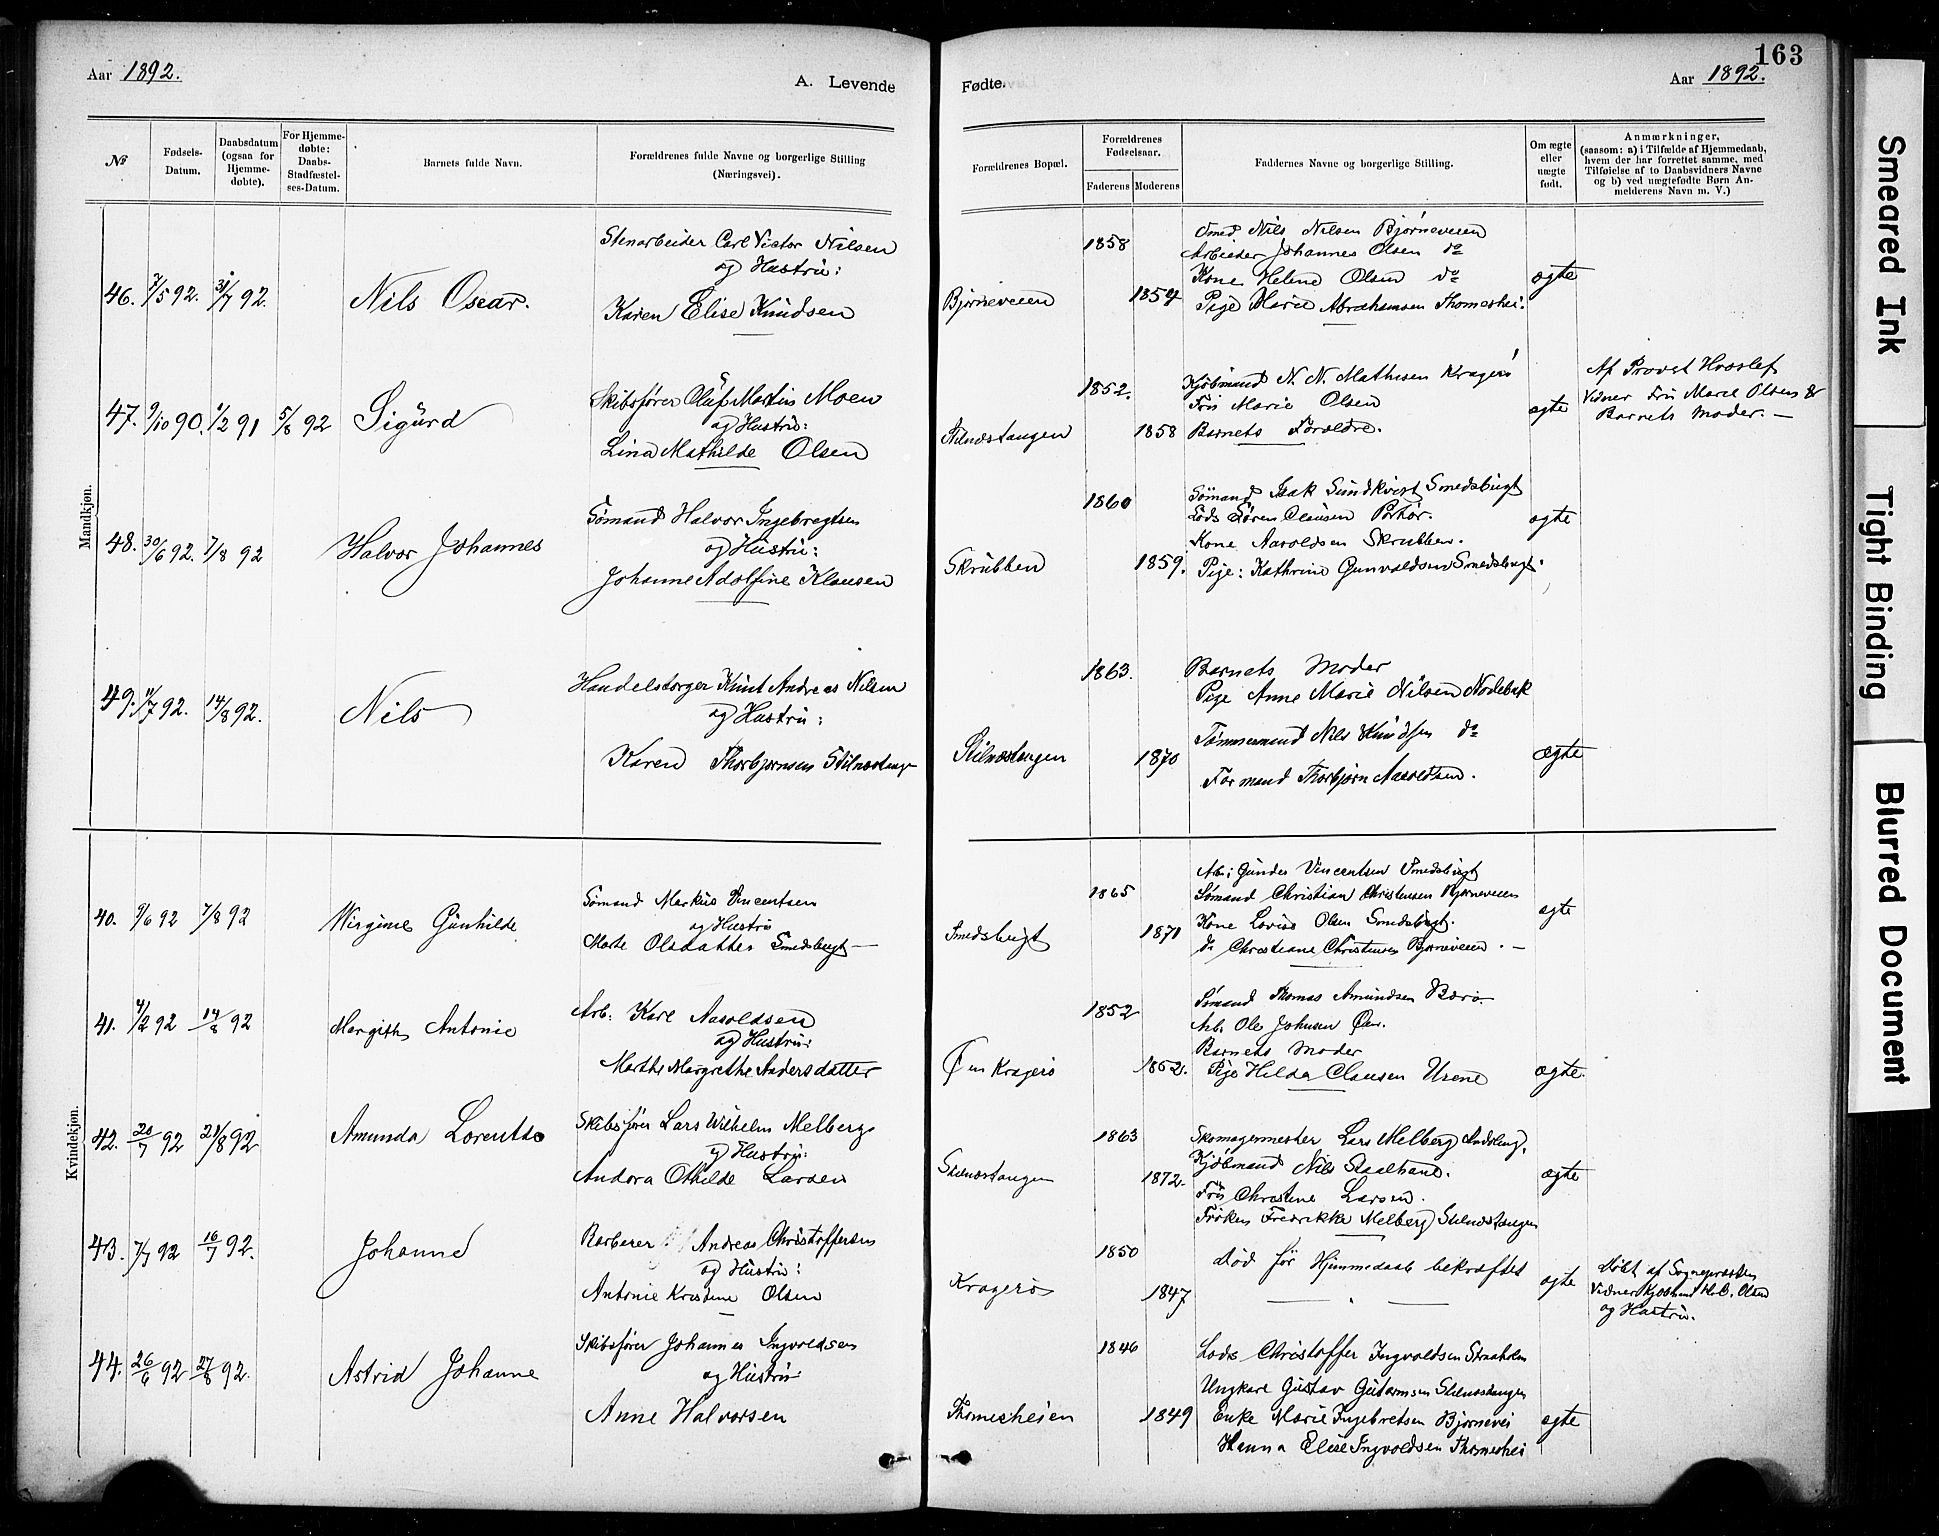 163
Aar 1892.
A. Levende
Fødte.
Aar 1892.
№
Fødsels-Datum.
Daabsdatum (ogsaa for Hjemmedøbte).
For Hjemmedøbte: Daabs-Stadfæstelses-Datum.
Barnets fulde Navn.
Forældrenes fulde Navne og borgerlige Stilling (Næringsvei).
Forældrenes Bopæl.
Forældrenes Fødselsaar.
Faderens
Moderens
Faddernes Navne og borgerlige Stilling.
Om ægte eller uægte født.
Anmærkninger, (saasom: a) i Tilfælde af Hjemmedaab, hvem der har forrettet samme, med Tilføielse af to Daabsvidners Navne og b) ved uægtefødte Børn Anmelderens Navn m. V.)
Mandkjøn.
46. 7/5 92. 31/7 92.
Nils Oscar.
Stenarbeider Carl Victor Nilsen
og Hustru:
Karen Elise Knudsen
Bjørneveien
1858
1854
Smed Nils Nilsen Bjørneveien
Arbeider Johannes Olsen do
Kone Helene Olsen do
Pige Marie Abrahamsen Thomeshei.
ægte
47. 9/10 90. 1/2 91 5/8 92
Sigurd
Skibsfører Oluf Martin Moen
og Hustru:
Lina Mathilde Olsen
Stilnæstangen
1852.
1858
Kjøbmand N. N. Mathisen Kragerø
Fru Marie Olsen
Barnets Forældre.
ægte
Af Provst Hasslef
Vidner Fru Marie Olsen &
Barnets Moder. —
48. 30/6 92. 7/8 92
Halvor Johannes
Sømand Halvor Ingebregtsen
og Hustru:
Johanne Adolfine Klausen
Skrubben
1860
1859.
Sømand Isak Sundkvist Smedsbugt
Lods Søren Clausen Portør.
Kone Aaroldsen Skrubben.
Pige: Kathrine Gunvaldsen Smedsbugt.
ægte
49. 11/7 92. 14/8 92.
Nils
Handelsborger Knut Andreas Nilsen
og Hustru:
Karen Thorbjørnsen Stilnæstange
Stilnæstangen
1863.
1870
Barnets Moder
Pige Anne Marie Nilsen Nodebak
Tømmermand Nils Knudsen do
Formand Thorbjørn Aaroldsen.
ægte
Kvindekjøn.
40. 9/6 92 7/8 92
Wirginie Gunhilde
Sømand Markus Vincentsen
og Hustru
Marte Olsdatter Smedsbugt —
Smedsbugt
1865
1871
Arb: Gunder Vincentsen Smedsbugt
Sømand Christian Christensen Bjørneveien
Kone Lovise Olsen Smedsbugt.
do Christiane Christensen Bjørneveien. —
ægte
41. 4/2 92 14/8 92
Margith Antonie
Arb: Karl Aaroldsen
og Hustru:
Marthe Margrethe Andersdatter
Øen Kragerø
1852
1852.
Sømand Thomas Amundsen Bærø
Arb. Ole Johnsen Øen.
Barnets Moder
Pige Hilda Clausen Urene
ægte.
42. 20/7 92 21/8 92
Amunda Lorentse
Skibsfører Lars Wilhelm Melberg
og Hustru:
Andora Othilde Larsen
Stilnæstangen
1863
1872.
Skomagermester Lars Melberg
Kjøbmand Nils Staalhane.
Fru Christine Larsen.
Frøken Fredrikke Melberg Stilnæstangen
ægte
43. 7/7 92 16/7 92.
Johanne
Barberer Andreas Christoffersen
og Hustru:
Antonie Kristine Olsen
Kragerø
1850
1847
Død før Hjemmedaab bekræftet
ægte
Døbt af Sognepræsten
Vidner Kjøbmand H. C. Olsen
og Hustru.
44. 26/6 92 27/8 92.
Astrid Johanne
Skibsfører Johannes Ingvoldsen
og Hustru:
Anne Halvorsen
Thomesheien
1846
1849
Lods Christoffer Ingvoldsen Straaholm
Ungkarl Gustav Gutormsen Stilnæstangen
Enke Marie Ingebretsen Bjørnevei
Hanna Elise Ingvoldsen Thomeshei
ægte
Smeared Ink
Tight Binding
Blurred Document